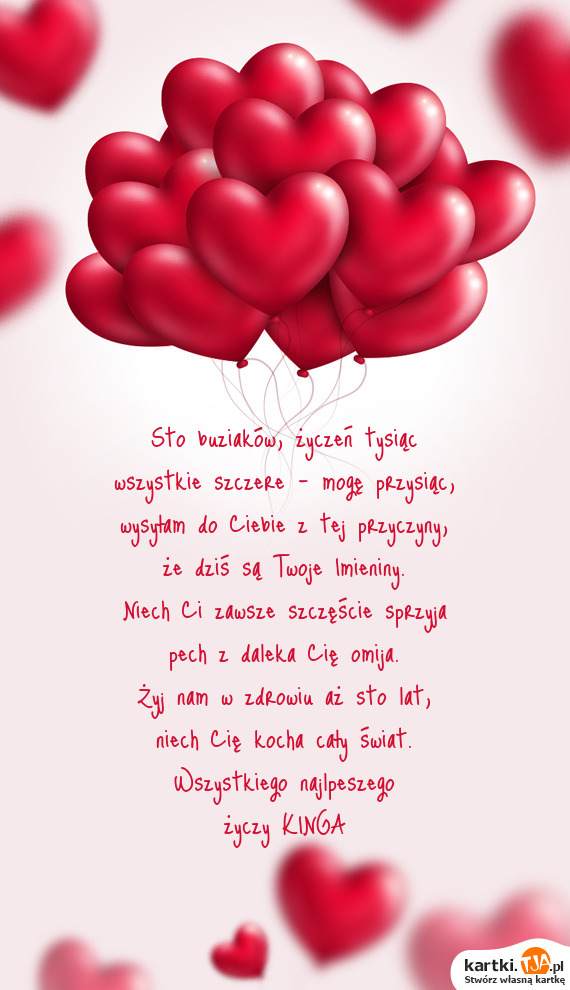 Sto buziaków, życzeń tysiąc
wszystkie szczere - mogę przysiąc,
wysyłam do Ciebie z tej przyczyny,
że dziś są Twoje Imieniny.
Niech Ci zawsze szczęście sprzyja
pech z daleka Cię omija.
Żyj nam w zdrowiu aż sto lat,
niech Cię kocha cały świat.
Wszystkiego najlpeszego
życzy KINGA
kartki.TJA.pl
Stwórz własną kartkę